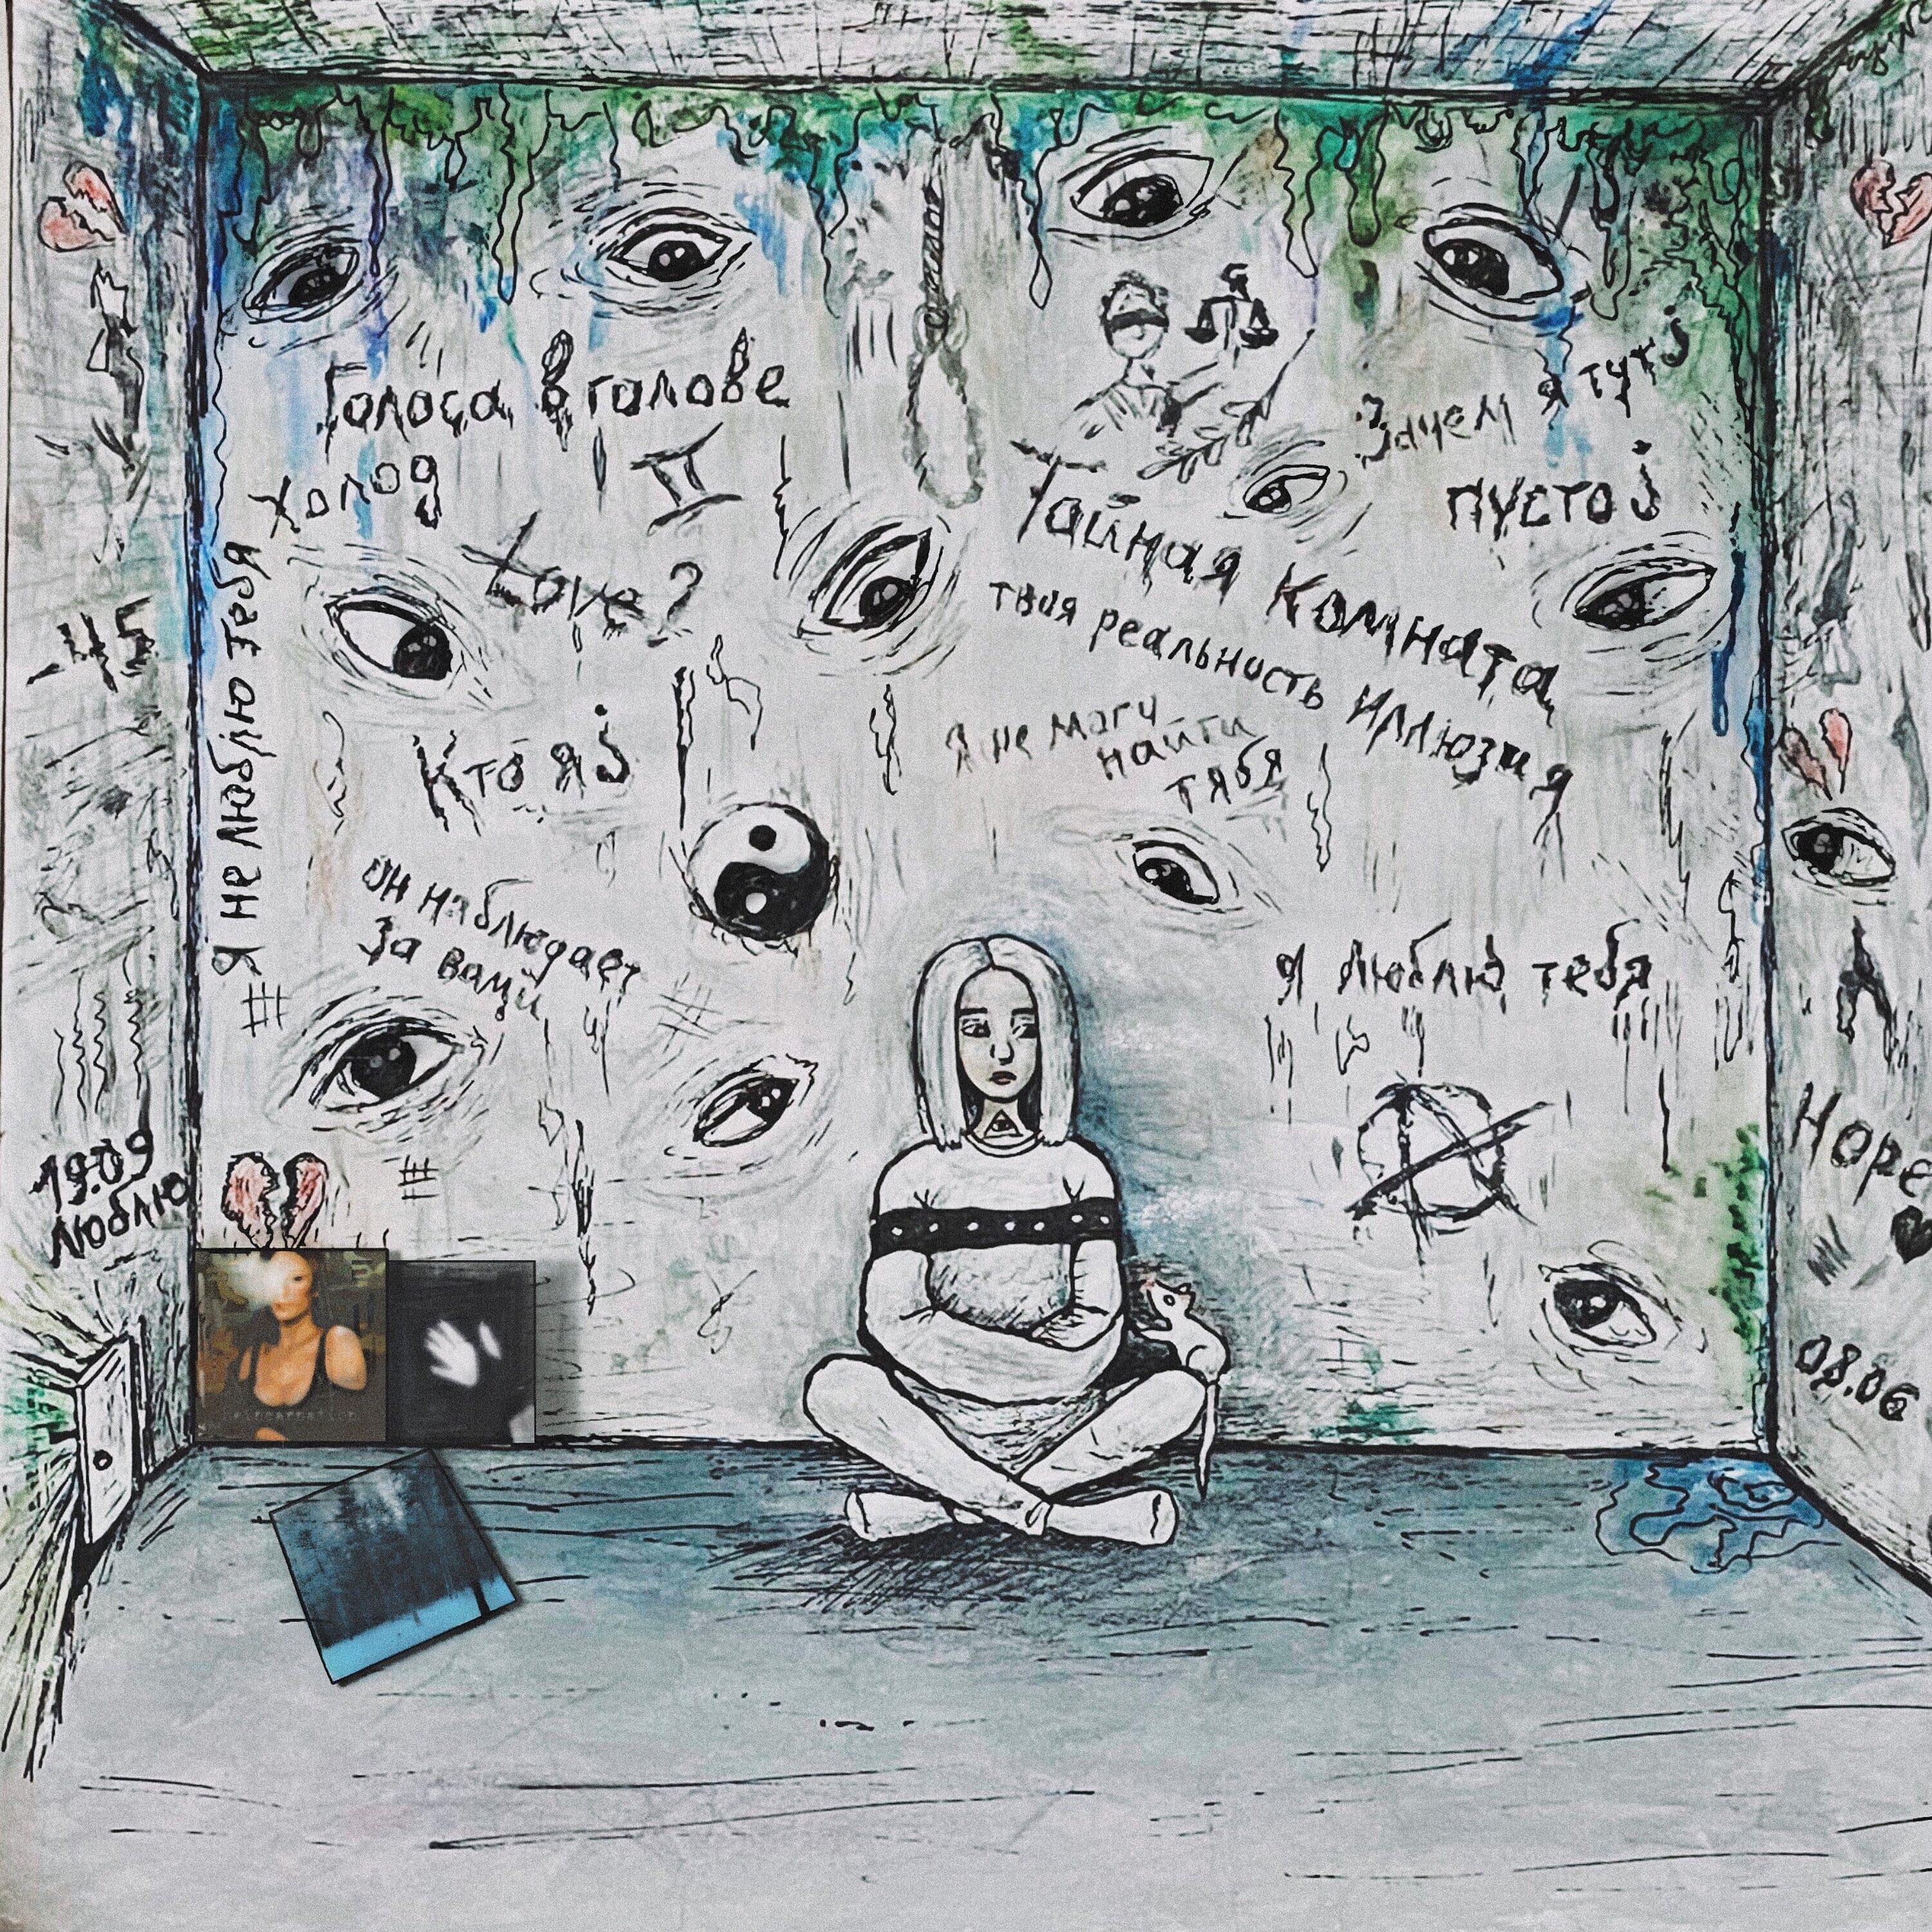 Голоса в голове
Зачем я тут?
Холод
пусто?
Love?
Тайная Комната
твоя реальность иллюзия
-45
Я не люблю тебя
Кто я?
Я не могу
найти
тябя
он наблюдает
за вами
я люблю тебя
19.09
люблю
Hope
08.06